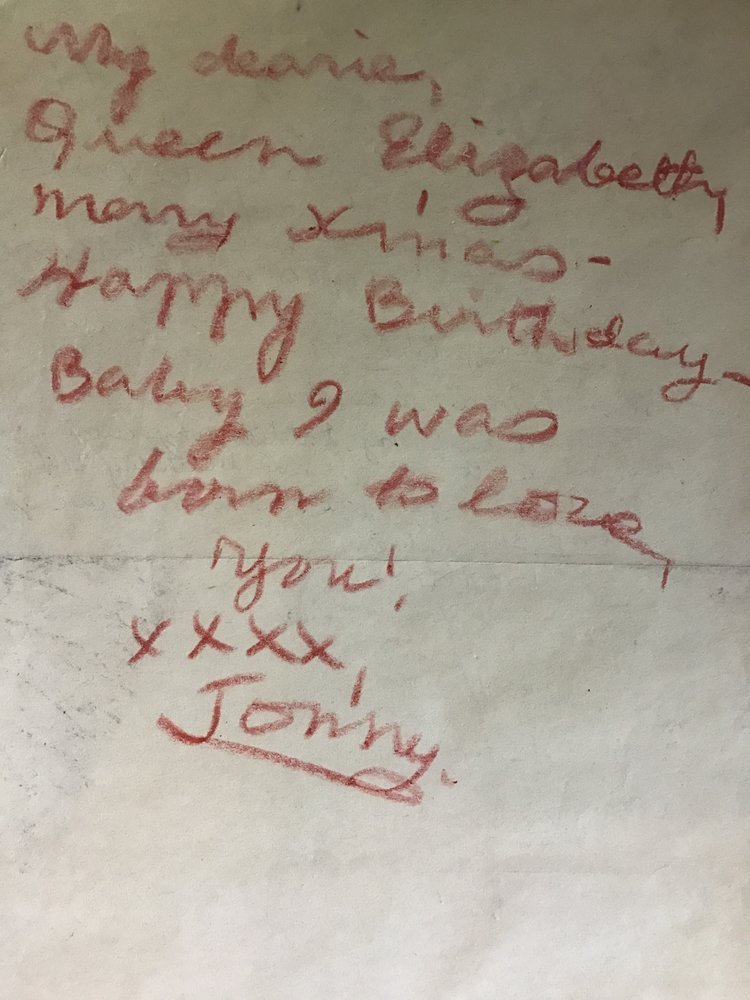 My dearie,
Queen Elizabeth,
Merry X'mas-
Happy Birthday-
Baby I was
born to love,
you!
xxxx,
Jonny.